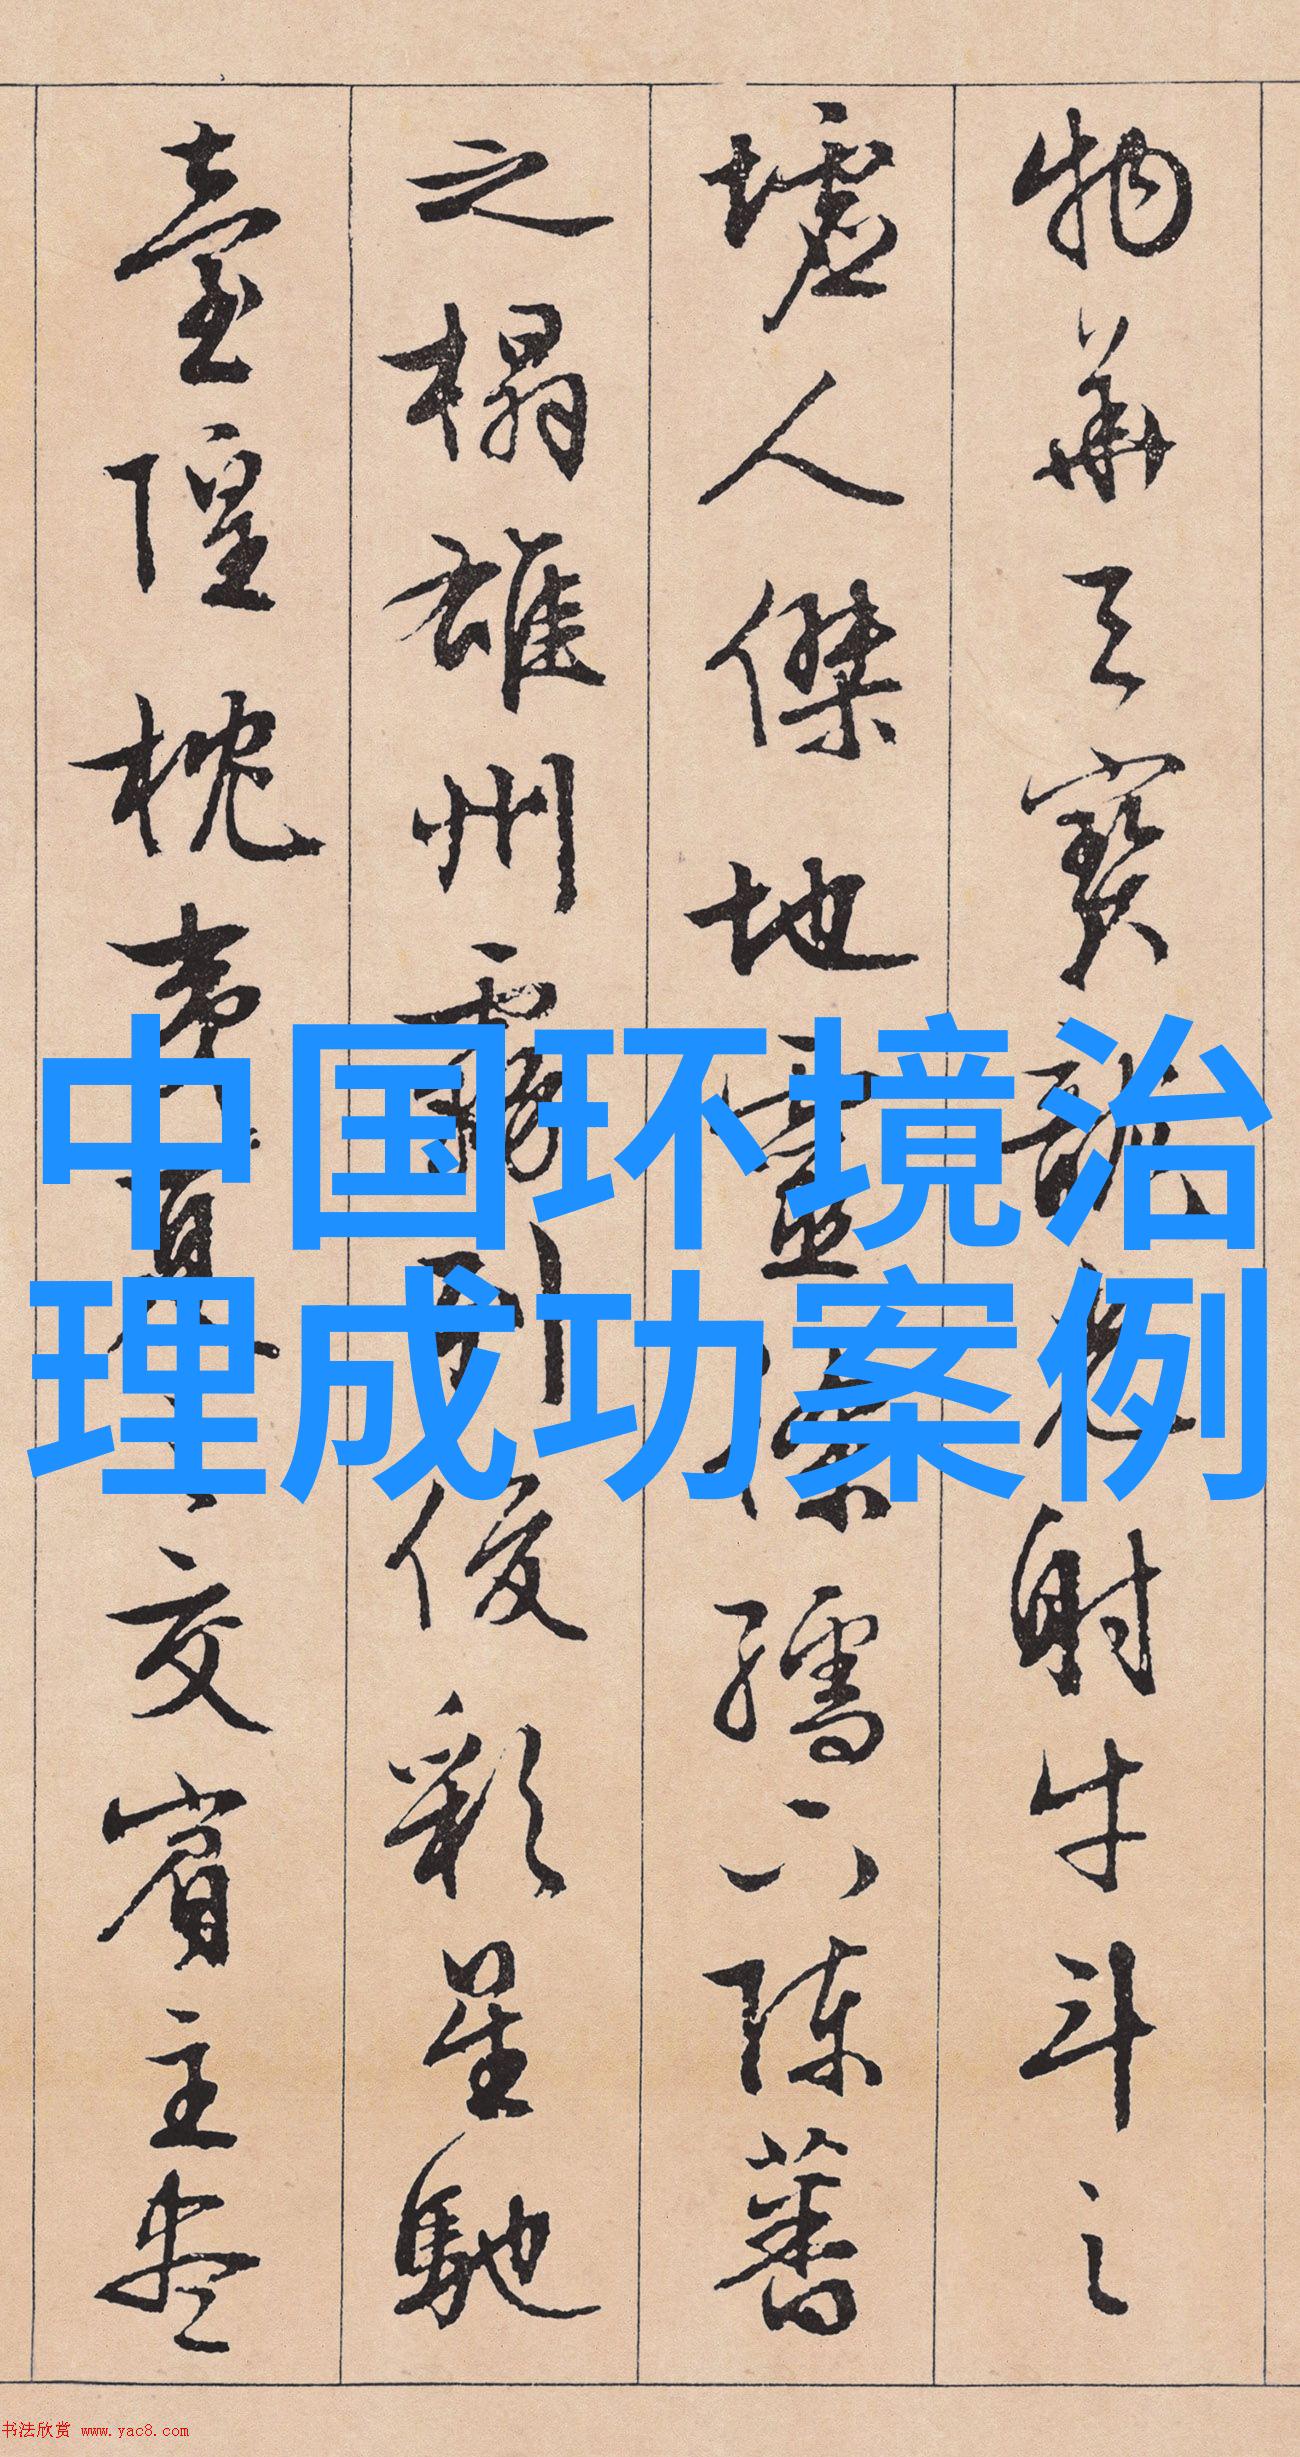 物華天寶龍光射牛斗之
墟人傑地靈徐孺下陳蕃
之榻雄州霧列俊彩星馳
臺隍枕夷夏之交賓主盡
中国环境治
理成功案例
书法欣赏 www.yac8.com